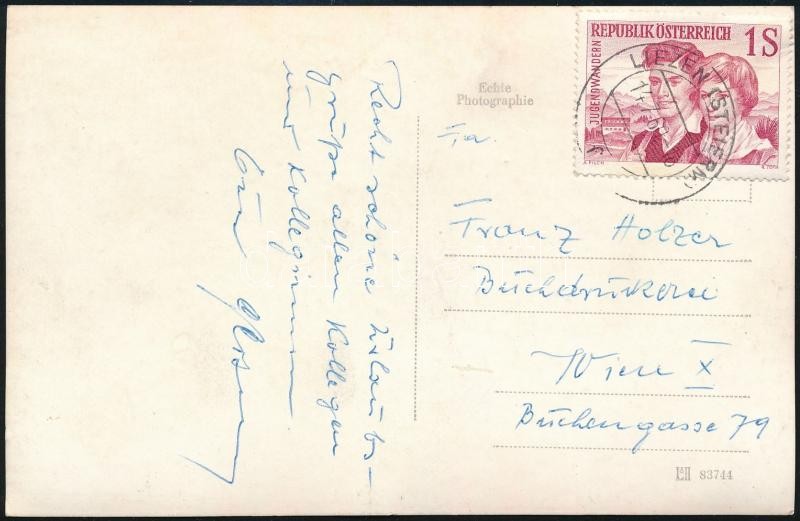 Recht schöne Urlaubs-
grüße allen Kollegen
und Kolleginnen
Euer
Echte
Photographie
REPUBLIK ÖSTERREICH 1S
JUGENDWANDERN
LIEZEN (STEIERM)
Fa.
Franz Holzer
Buchdruckerei
Wien X
Buchengasse 79
83744